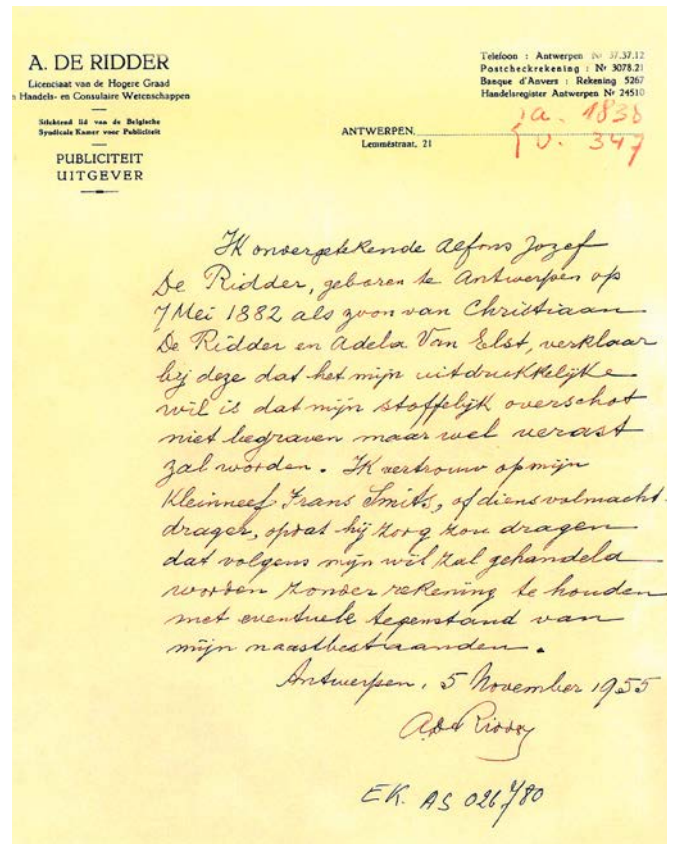 A. DE RIDDER
Licenciaat van de Hogere Graad
Handels- en Consulaire Wetenschappen
Stichtend lid van de Belgische
Syndicale Kamer voor Publiciteit
PUBLICITEIT
UITGEVER
Telefoon : Antwerpen Nr 37.37.12
Postcheckrekening : Nr 3078.21
Banque d'Anvers : Rekening 5267
Handelsregister Antwerpen Nr 24510
a. 1838
v. 347
ANTWERPEN,
Lemméstraat, 21
Ik ondergetekende Alfons Jozef
De Ridder, geboren te Antwerpen op
7 Mei 1882 als zoon van Christiaan
De Ridder en Adela Van Elst, verklaar
bij deze dat het mijn uitdrukkelijke
wil is dat mijn stoffelijk overschot
niet begraven maar wel verast
zal worden. Ik vertrouw op mijn
Kleinneef Frans Smits, of diens volmacht-
drager, opdat hij zorg zou dragen
dat volgens mijn wil zal gehandeld
worden zonder rekening te houden
met eventuele tegenstand van
mijn naastbestaanden.
Antwerpen, 5 November 1955
A. De Ridder
EK. AS 026/80